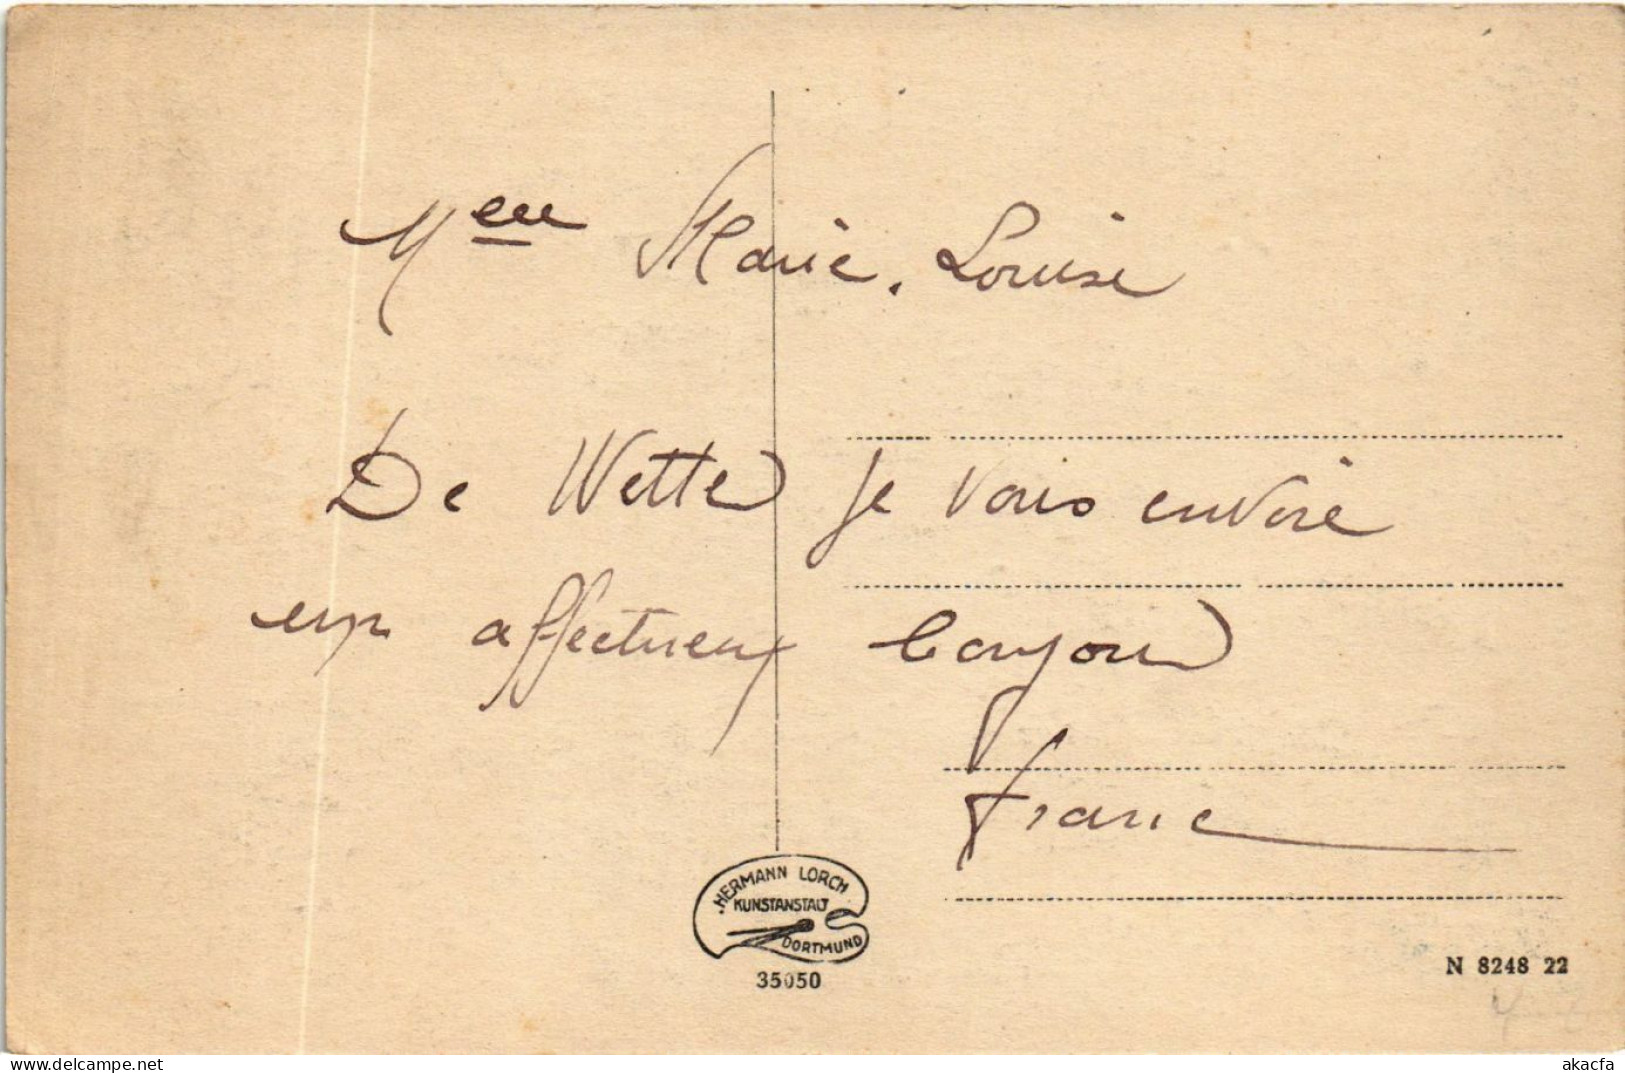 Melle Marie. Louise
De Wetter je vous envoie
un affectueux bonjour
France
HERMANN LORCH
KUNSTANSTALT
DORTMUND
35050
N 8248 22
delcampe.net
akacfa